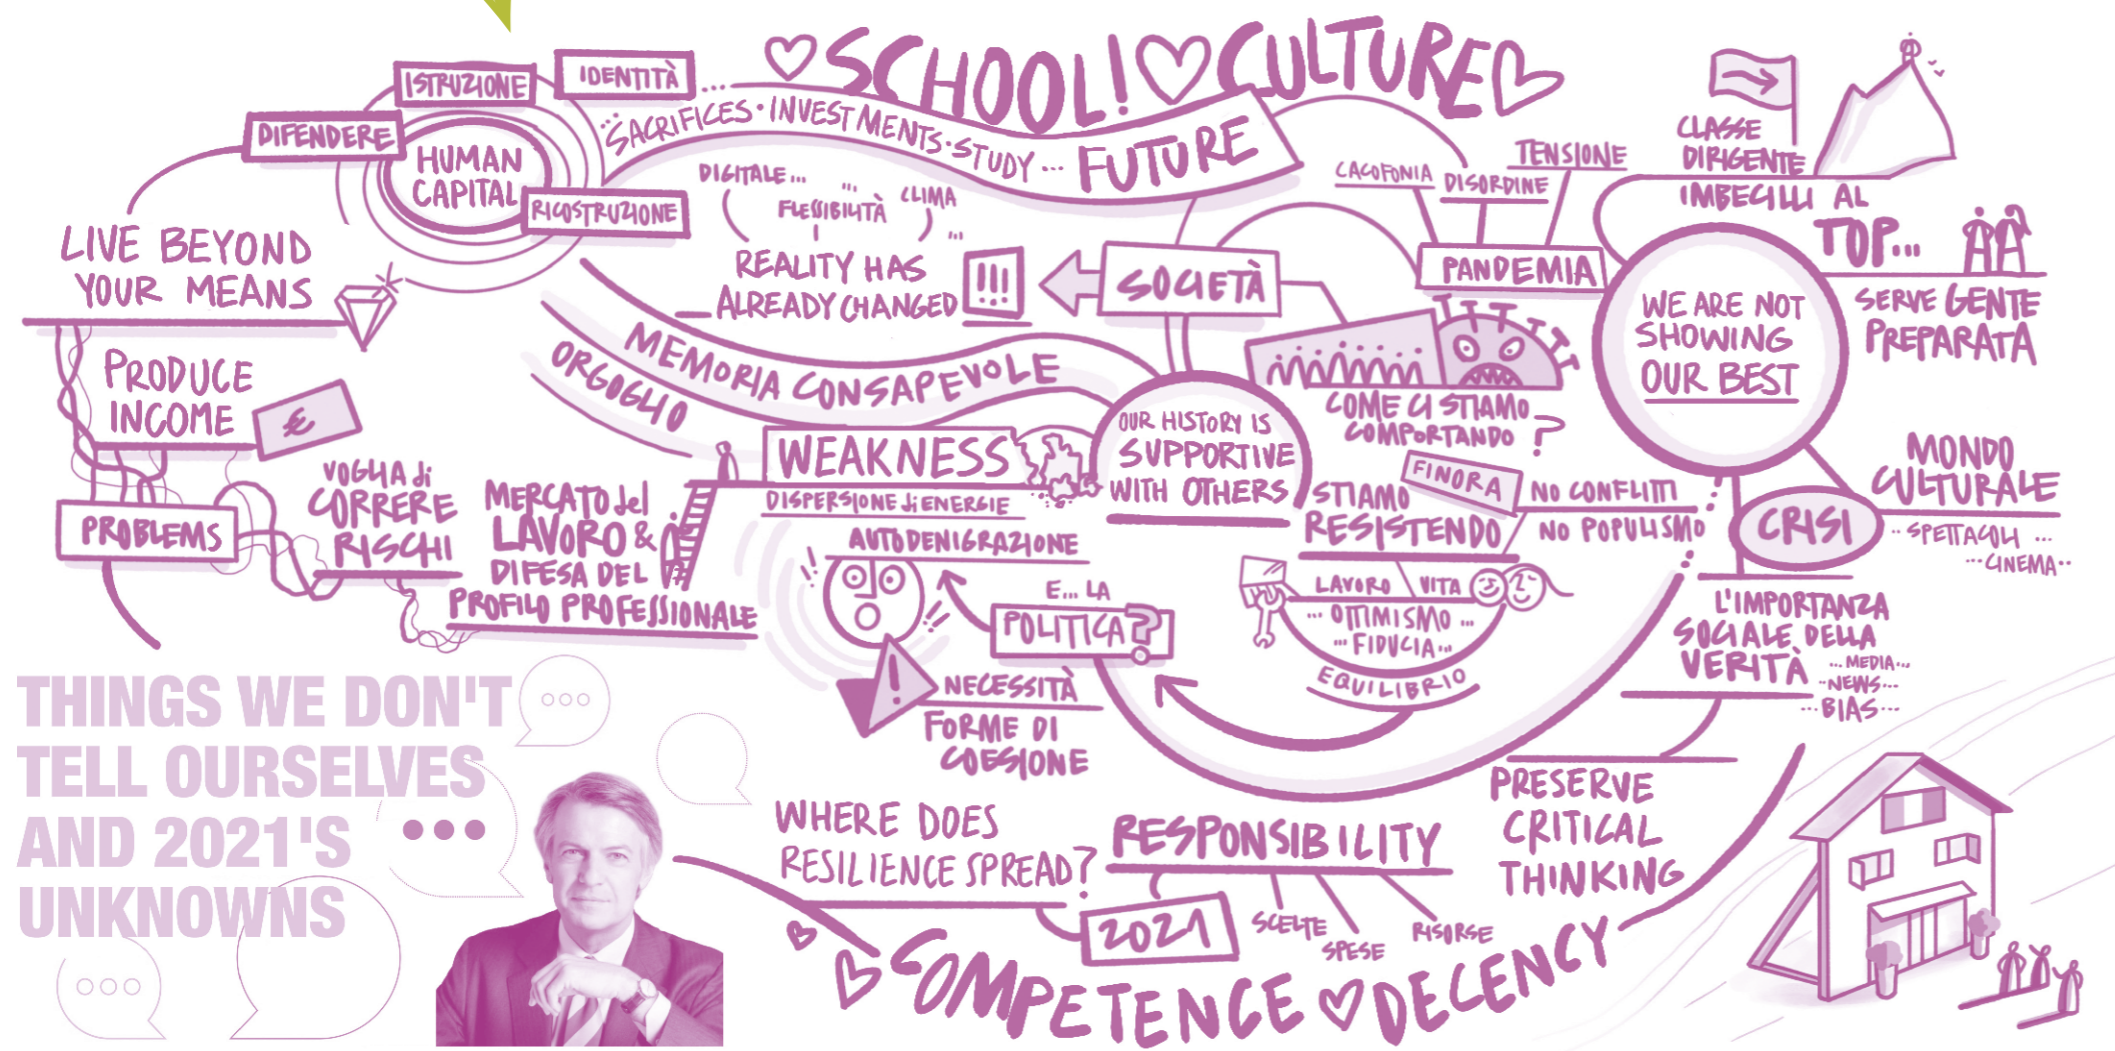 SCHOOL! CULTURE
ISTRUZIONE
IDENTITÀ
...
DIFENDERE
HUMAN
CAPITAL
RICOSTRUZIONE
... SACRIFICES • INVESTMENTS • STUDY ... FUTURE
DIGITALE ...
...
FLESSIBILITÀ
CLIMA
...
REALITY HAS
ALREADY CHANGED
!!!
SOCIETÀ
CACOFONIA
DISORDINE
TENSIONE
PANDEMIA
CLASSE
DIRIGENTE
IMBECILLI AL
TOP...
SERVE GENTE
PREPARATA
WE ARE NOT
SHOWING
OUR BEST
LIVE BEYOND
YOUR MEANS
PRODUCE
INCOME
€
PROBLEMS
VOGLIA di
CORRERE
RISCHI
MERCATO del
LAVORO &
DIFESA DEL
PROFILO PROFESSIONALE
MEMORIA CONSAPEVOLE
ORGOGLIO
WEAKNESS
DISPERSIONE di ENERGIE
OUR HISTORY IS
SUPPORTIVE
WITH OTHERS
COME CI STIAMO
COMPORTANDO ?
STIAMO
FINORA
RESISTENDO
NO CONFLITTI
NO POPULISMO
LAVORO
VITA
... OTTIMISMO ...
... FIDUCIA ...
EQUILIBRIO
AUTODENIGRAZIONE
!!
!!
E... LA
POLITICA?
!
NECESSITÀ
FORME DI
COESIONE
MONDO
CULTURALE
.. SPETTACOLI ...
... CINEMA ..
CRISI
L'IMPORTANZA
SOCIALE DELLA
VERITÀ
... MEDIA ...
.. NEWS ...
... BIAS ...
PRESERVE
CRITICAL
THINKING
THINGS WE DON'T
TELL OURSELVES
AND 2021'S
UNKNOWNS
WHERE DOES
RESILIENCE SPREAD?
RESPONSIBILITY
2021
SCELTE
SPESE
RISORSE
COMPETENCE DECENCY